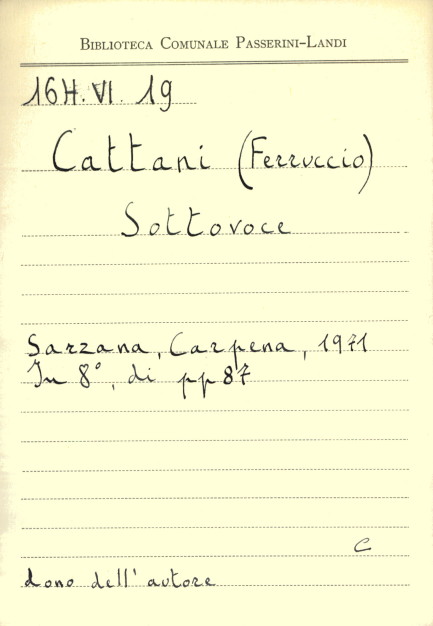 Biblioteca Comunale Passerini-Landi
16H.VI.19
Cattani (Ferruccio)
Sottovoce
Sarzana, Carpena, 1971
In 8°, di pp 87
C
dono dell'autore